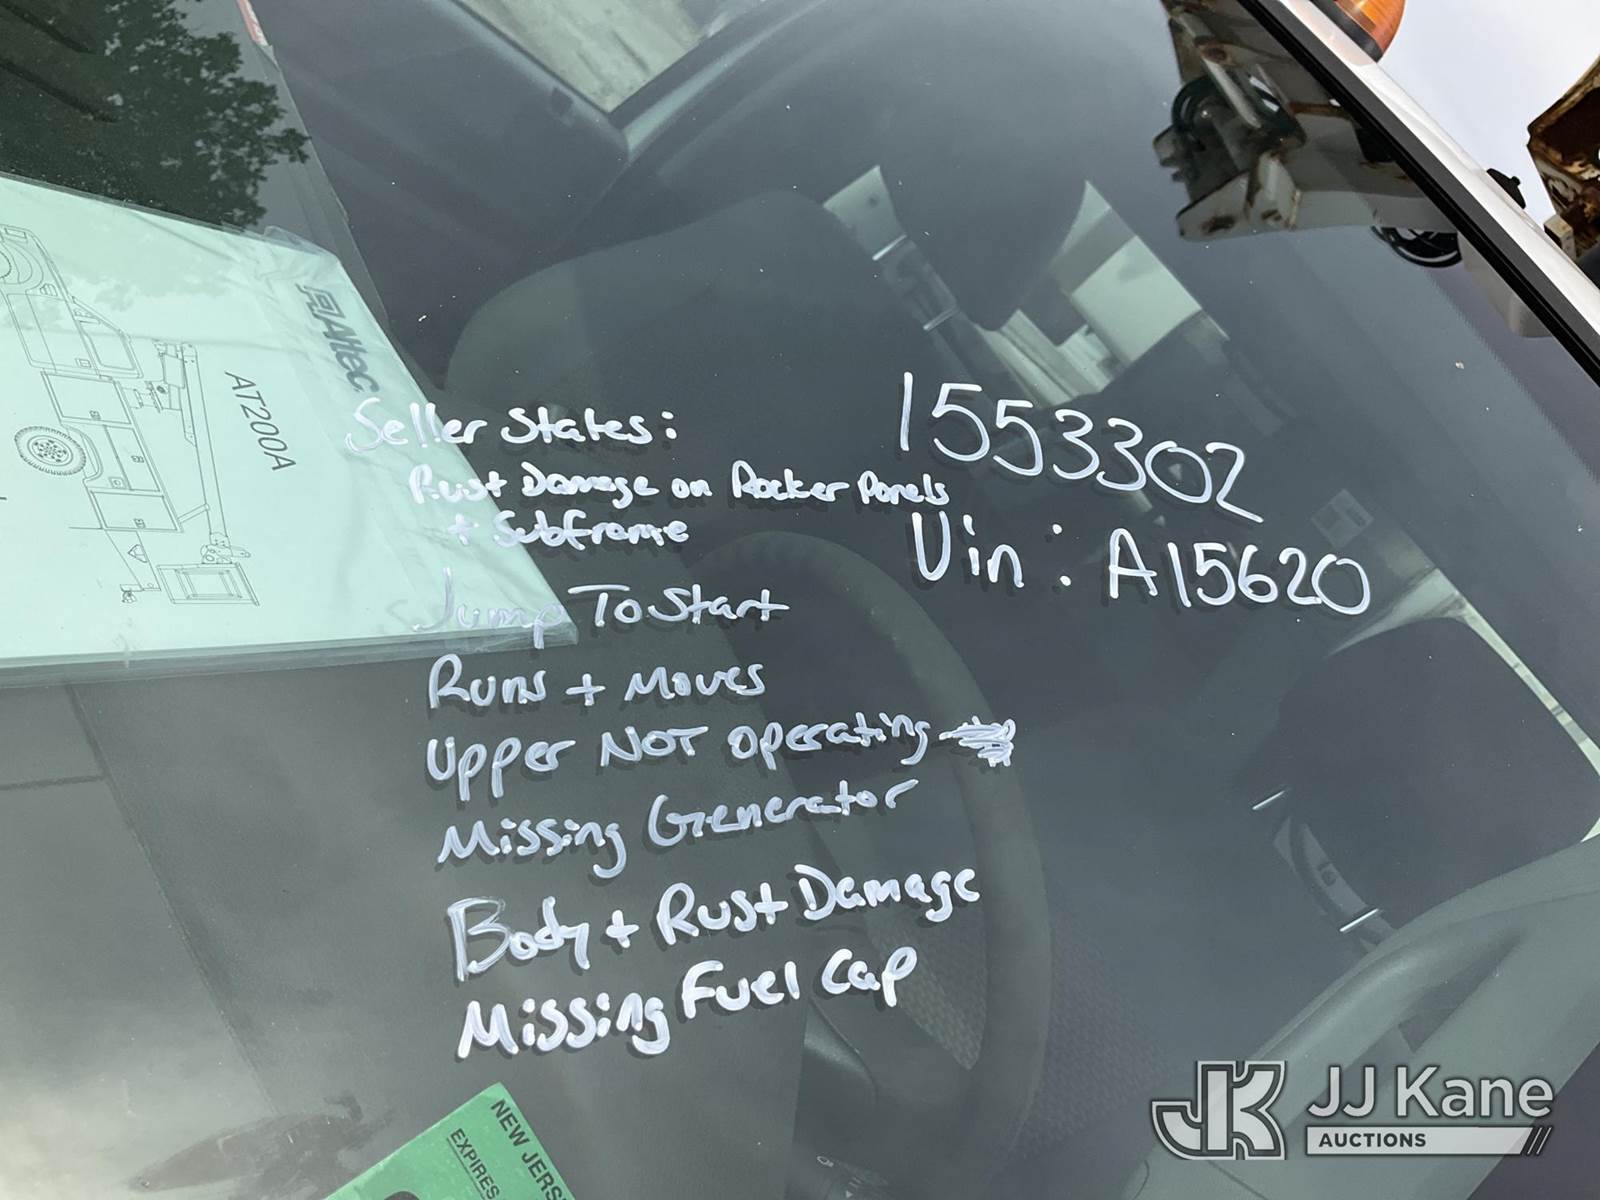 Altec
AT200A
Seller States:
Rust Damage on Rocker Panels
+ Subframe
Jump To Start
Runs + Moves
Upper NOT Operating
Missing Generator
Body + Rust Damage
Missing Fuel Cap
1553302
Vin: A15620
NEW JERS
EXPIRES
JK JJ Kane
AUCTIONS